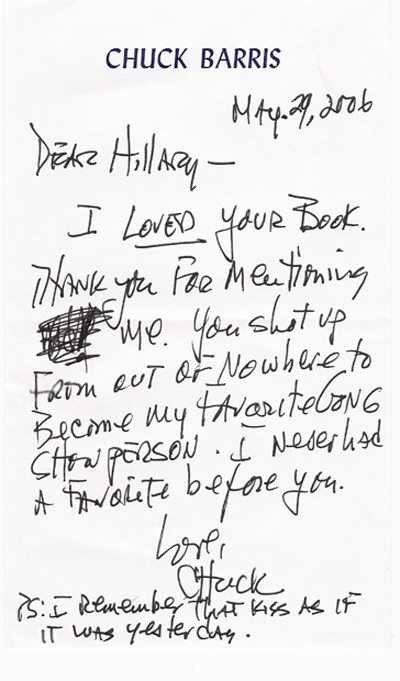 CHUCK BARRIS
May. 29, 2006
Dear Hillary —
I LOVED your Book.
Thank you For mentioning
me. You shot up
From out of Nowhere to
Become my favorite GONG
SHOW PERSON. I Never had
A FAVORITE before you.
Love,
Chuck
PS: I Remember THAT KISS AS IF
IT WAS yesterday.